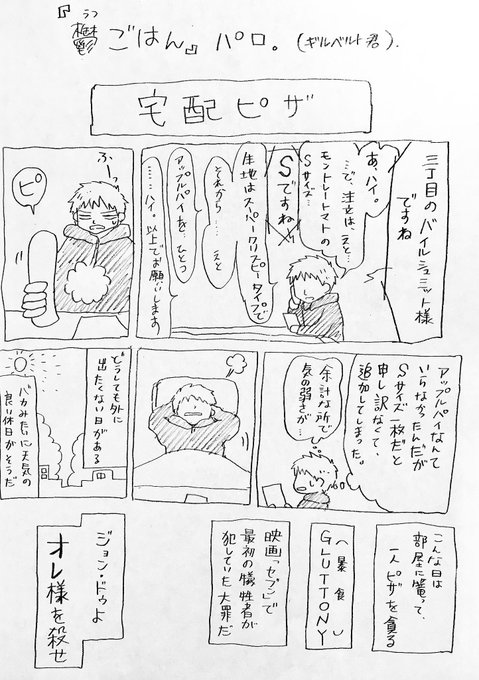 『鬱ごはん』パロ。(ギルベルト君).
うつ
宅配ピザ
三丁目のバイルシュミット様
ですね
あ、ハイ。
…で、注文は、えと…
モントレートマトの
Sサイズ…
Sですね
生地はスーパークリスピータイプで
それから……えと
アップルパイを…ひとつ
……ハイ。以上でお願いします
ふーっ
ピ
アップルパイなんて
いらなかったんだが
Sサイズ一枚だと
申し訳なくて、
追加してしまった。
余計な所で
気の弱さが…
どうしても外に
出たくない日がある
バカみたいに天気の
良い休日がそうだ
こんな日は
部屋に篭って、
一人ピザを貪る
〈暴食〉
GLUTTONY
映画「セブン」で
最初の犠牲者が
犯していた大罪だ
ジョン・ドゥよ
オレ様を殺せ